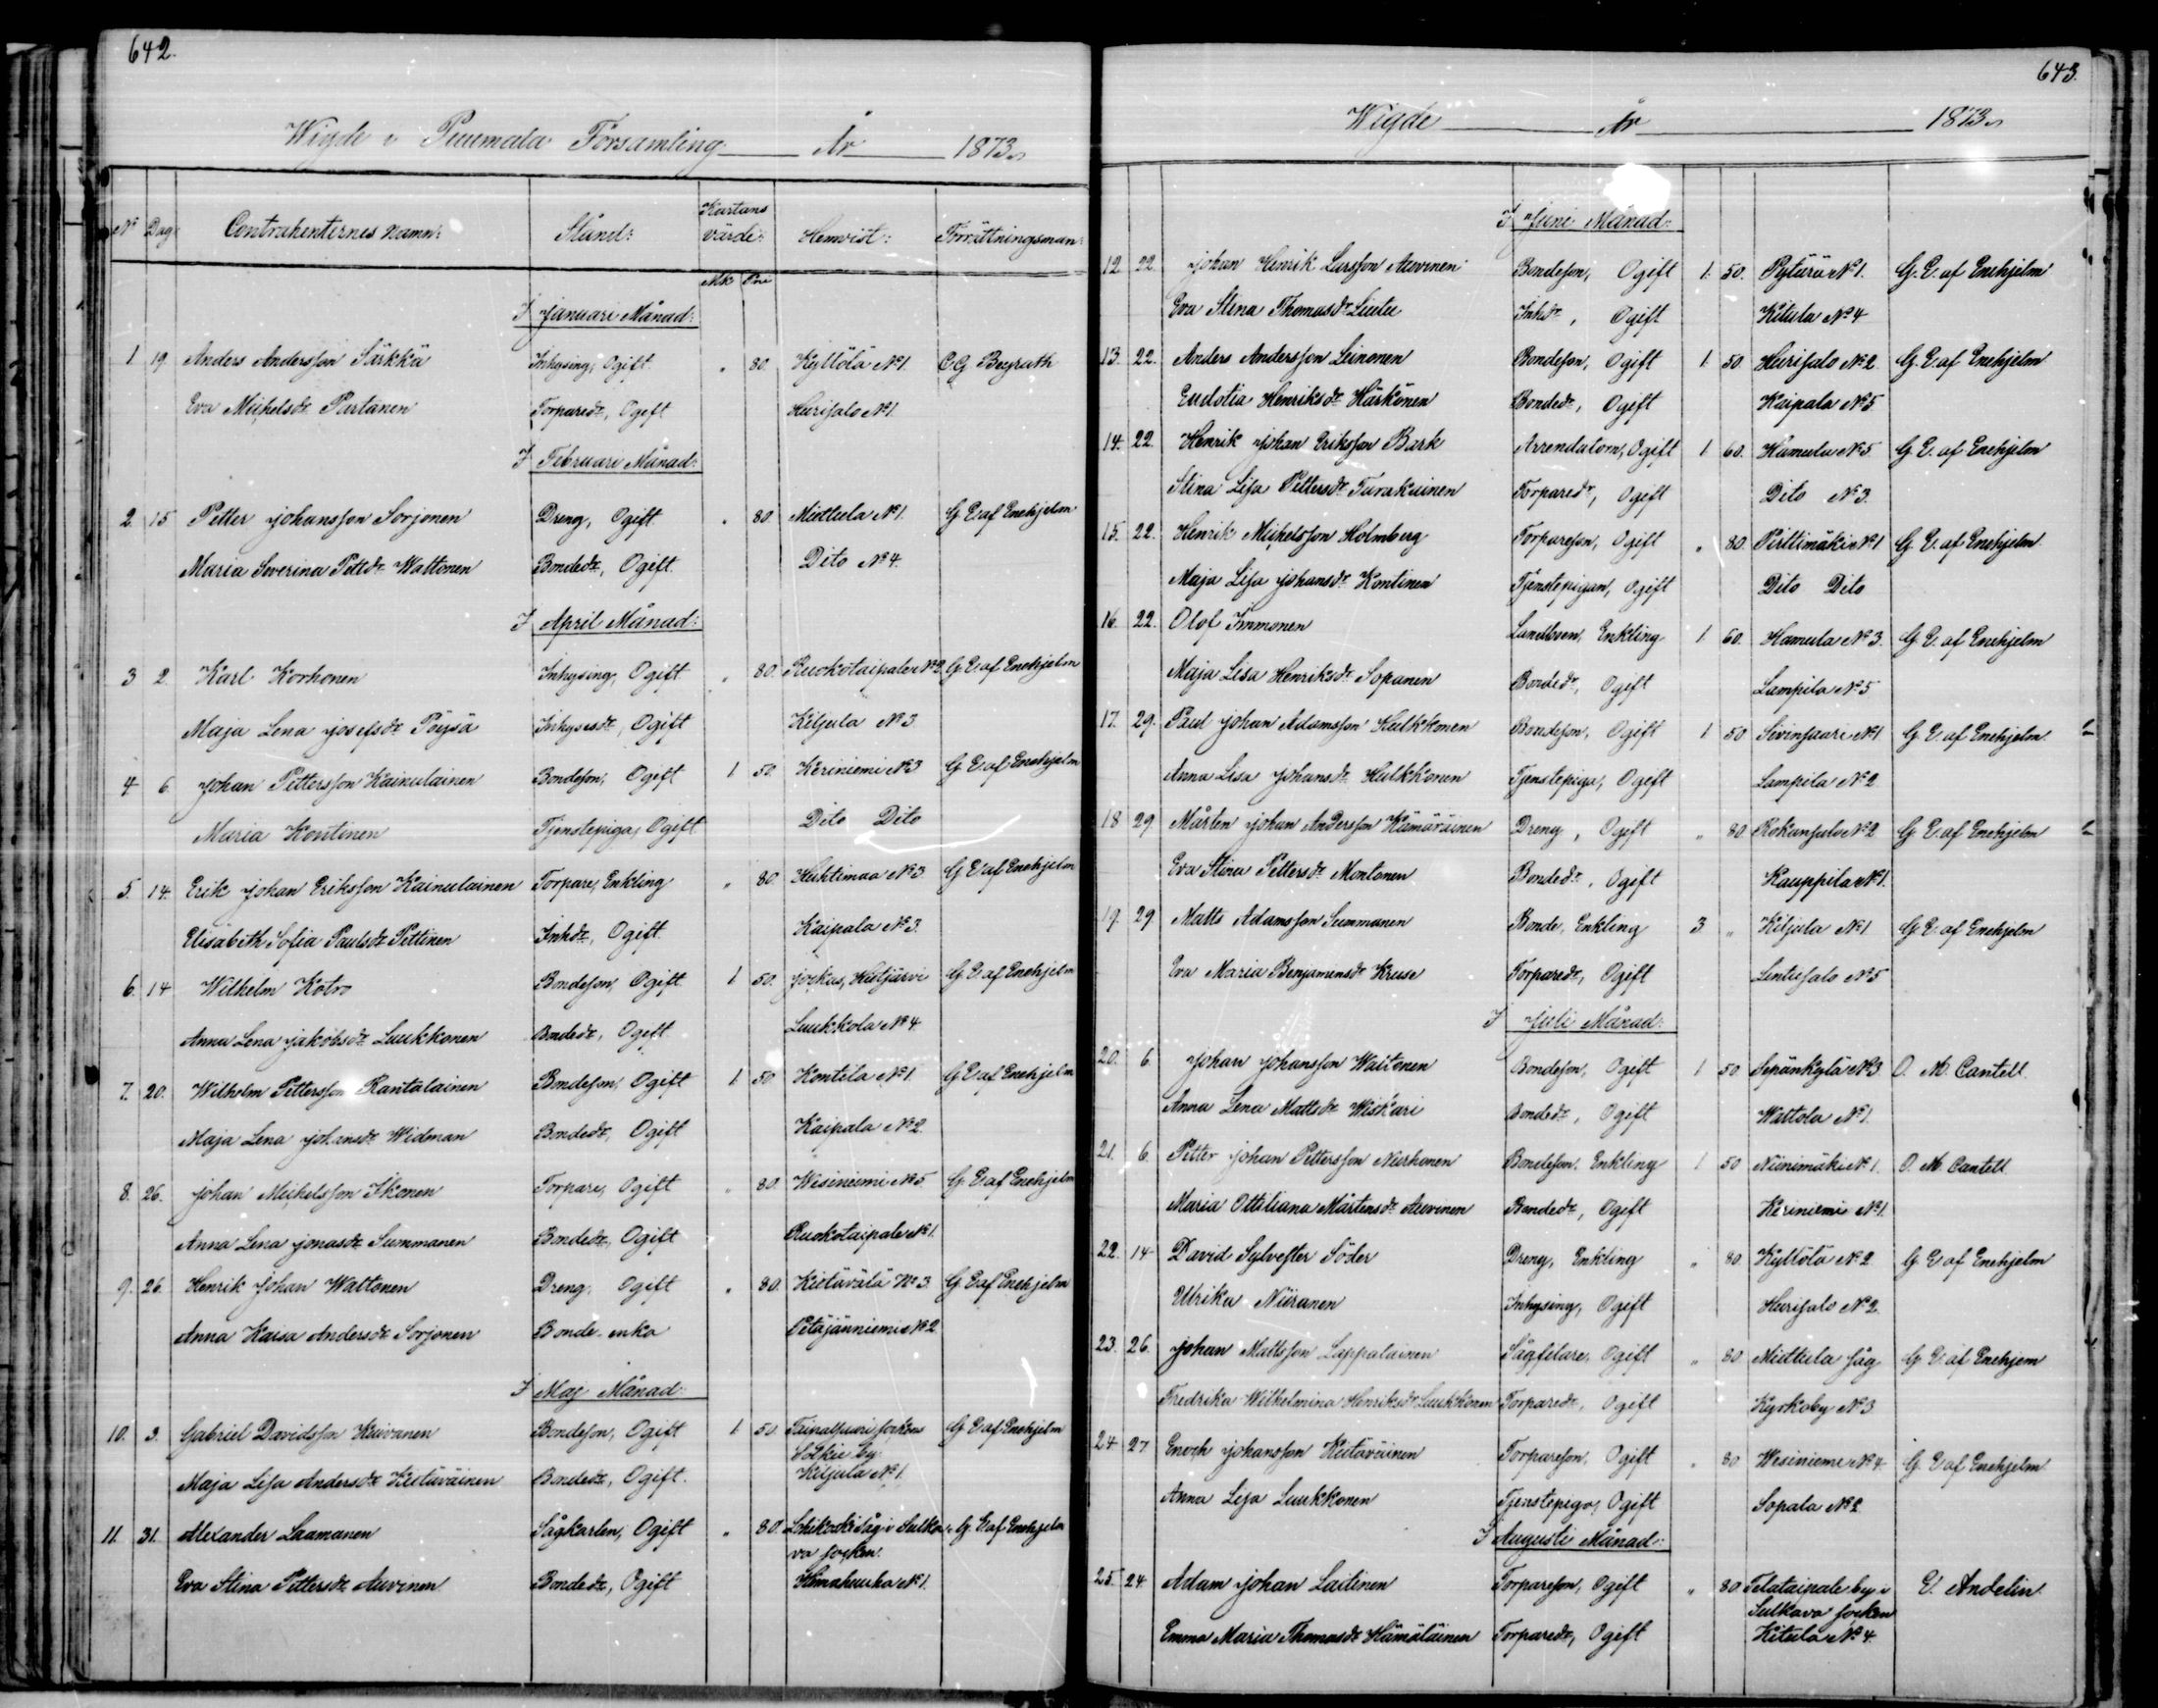 642.
Wigde i Puumala Församling År 1873.
No Dag: Contrahenternes namn: Stånd: Kartans värde: Hemvist: Förrättningsman:
Mk Pni
I Januari Månad:
1 19. Anders Andersson Särkkä Inhysing, Ogift. " 80. Kyllölä No 1. C.G. Bergrath
Eva Michelsdr Partanen Torparedr, Ogift Hurisalo No 1.
I Februari Månad:
2. 15. Petter Johansson Sorjonen Dreng, Ogift " 80. Miettula No 1. G. E. af Enehjelm
Maria Severina Pettdr Wattonen Bondedr, Ogift. Dito No 4.
I April Månad:
3 2. Karl Korhonen Inhysing, Ogift " 80. Ruokotaipale No 2. G. E. af Enehjelm
Maja Lena Josefsdr Pöysä Inhysesdr, Ogift Kiljula No 3
4 6. Johan Pettersson Kainulainen Bondeson, Ogift 1. 50. Keriniemi No 3 G. E. af Enehjelm
Maria Kontinen Tjenstepiga, Ogift Dito Dito
5. 14. Erik Johan Eriksson Kainulainen Torpare, Enkling " 80. Huhtimaa No 3 G. E. af Enehjelm
Elisabeth Sofia Paulsdr Pettinen Inhdr, Ogift. Kaipala No 3.
6. 14 Wilhelm Kotro Bondeson, Ogift. 1 50. Jockas, G. E. af Enehjelm
Anna Lena Jakobsdr Luukkonen Bondedr, Ogift. Luukkola No 4.
7. 20. Wilhelm Pettersson Rantalainen Bondeson, Ogift 1. 50 Kontila No 1. G. E. af Enehjelm
Maja Lena Johansdr Widman Bondedr, Ogift Kaipala No 2.
8. 26. Johan Michelsson Ikonen Torpare, Ogift " 80. Wesiniemi No 5 G. E. af Enehjelm
Anna Lena Jonasdr Summanen Bondedr, Ogift Ruokotaipale No 1.
9. 26. Henrik Johan Wattonen Dreng, Ogift " 80. Kietävälä No 3 G. E. af Enehjelm
Anna Kaisa Andersdr Sorjonen Bonde enka Petäjänniemi No 2
I Maj Månad:
10. 3. Gabriel Davidsson Kiivanen Bondeson, Ogift 1. 50. Taipalsaari socken G. E. af Enehjelm
Solkii by
Maja Lisa Andersdr Kietäväinen Bondedr, Ogift. Kiljula No 1.
11. 31. Alexander Laamanen Sågkarlen, Ogift " 80. Lohikoski såg i Sulka- G. E. af Enehjelm
va socken.
Eva Stina Pettersdr Auvinen Bondedr, Ogift Himahuuha No 1.
643.
Wigde År 1873.
I Juni Månad:
12. 22. Johan Henrik Larsson Auvinen Bondeson, Ogift 1. 50. No 1. G. E. af Enehjelm
Eva Stina Thomasdr Liutu Inhdr, Ogift Kitula No 4
13. 22. Anders Andersson Leinonen Bondeson, Ogift 1. 50. Hurisalo No 2 G. E. af Enehjelm
Eudotia Henriksdr Härkönen Bondedr, Ogift Kaipala No 5
14. 22. Henrik Johan Eriksson Bark Arrendatorn, Ogift 1 60. Hamula No 5 G. E. af Enehjelm
Stina Lisa Pettersdr Turakainen Torparedr, Ogift Dito No 3.
15. 22. Henrik Michelsson Holmberg Torpareson, Ogift " 80. Pirttimäki No 1 G. E. af Enehjelm.
Maja Lisa Johansdr Kontinen Tjenstepigan, Ogift Dito Dito
16. 22. Olof Immonen Landtbon, Enkling 1. 60. Hamula No 3. G. E. af Enehjelm
Maja Lisa Henriksdr Sopanen Bondedr, Ogift Lampila No 5
17. 29. Paul Johan Adamsson Hulkkonen Bondeson, Ogift 1 50 Sivinsaari No 1 G. E. af Enehjelm.
Anna Lisa Johansdr Hulkkonen Tjenstepiga, Ogift Lampila No 2
18 29 Mårten Johan Andersson Hämäräinen Dreng, Ogift " 80 Rokansalo No 2 G. E. af Enehjelm
Eva Stina Pettersdr Montonen Bondedr, Ogift Kauppila No 1.
19. 29 Matts Adamsson Summanen Bonde, Enkling 3 " Kiljula No 1 G. E. af Enehjelm
Eva Maria Benjaminsdr Kruse Torparedr, Ogift Lintusalo No 5
I Juli Månad:
20. 6 Johan Johansson Wattonen Bondeson, Ogift 1 50 Sepänkylä No 3 O. M. Cantell.
Anna Lena Mattsdr Wiskari Bondedr, Ogift Wattola No 1.
21. 6. Petter Johan Pettersson Nurhonen Bondeson, Enkling 1 50 Niinimäki No 1. O. M. Cantell
Maria Ottiliana Mårtensdr Auvinen Bondedr, Ogift Keriniemi No 1.
22. 14 David Sylvester Söder Dreng, Enkling " 80. Kyllölä No 2 G. E. af Enehjelm
Ulrika Niiranen Inhysing, Ogift Hurisalo No 2.
23. 26. Johan Mattsson Lappalainen Sågfilare, Ogift " 80 Miettula såg G. E. af Enehjem
Fredrika Wilhelmina Henriksdr Luukkonen Torparedr, Ogift Kyrkoby No 3
24 27 Enoch Johansson Kietäväinen Torpareson, Ogift " 80 Wesiniemi No 4. G. E. af Enehjelm.
Anna Lisa Luukkonen Tjenstepiga, Ogift Sopala No 2
I Augusti Månad:
25. 24. Adam Johan Laitinen Torpareson, Ogift " 80 Telataipale by i E. Andelin.
Sulkava socken
Emma Maria Thomasdr Hämäläinen Torparedr, Ogift Kitula No 4.